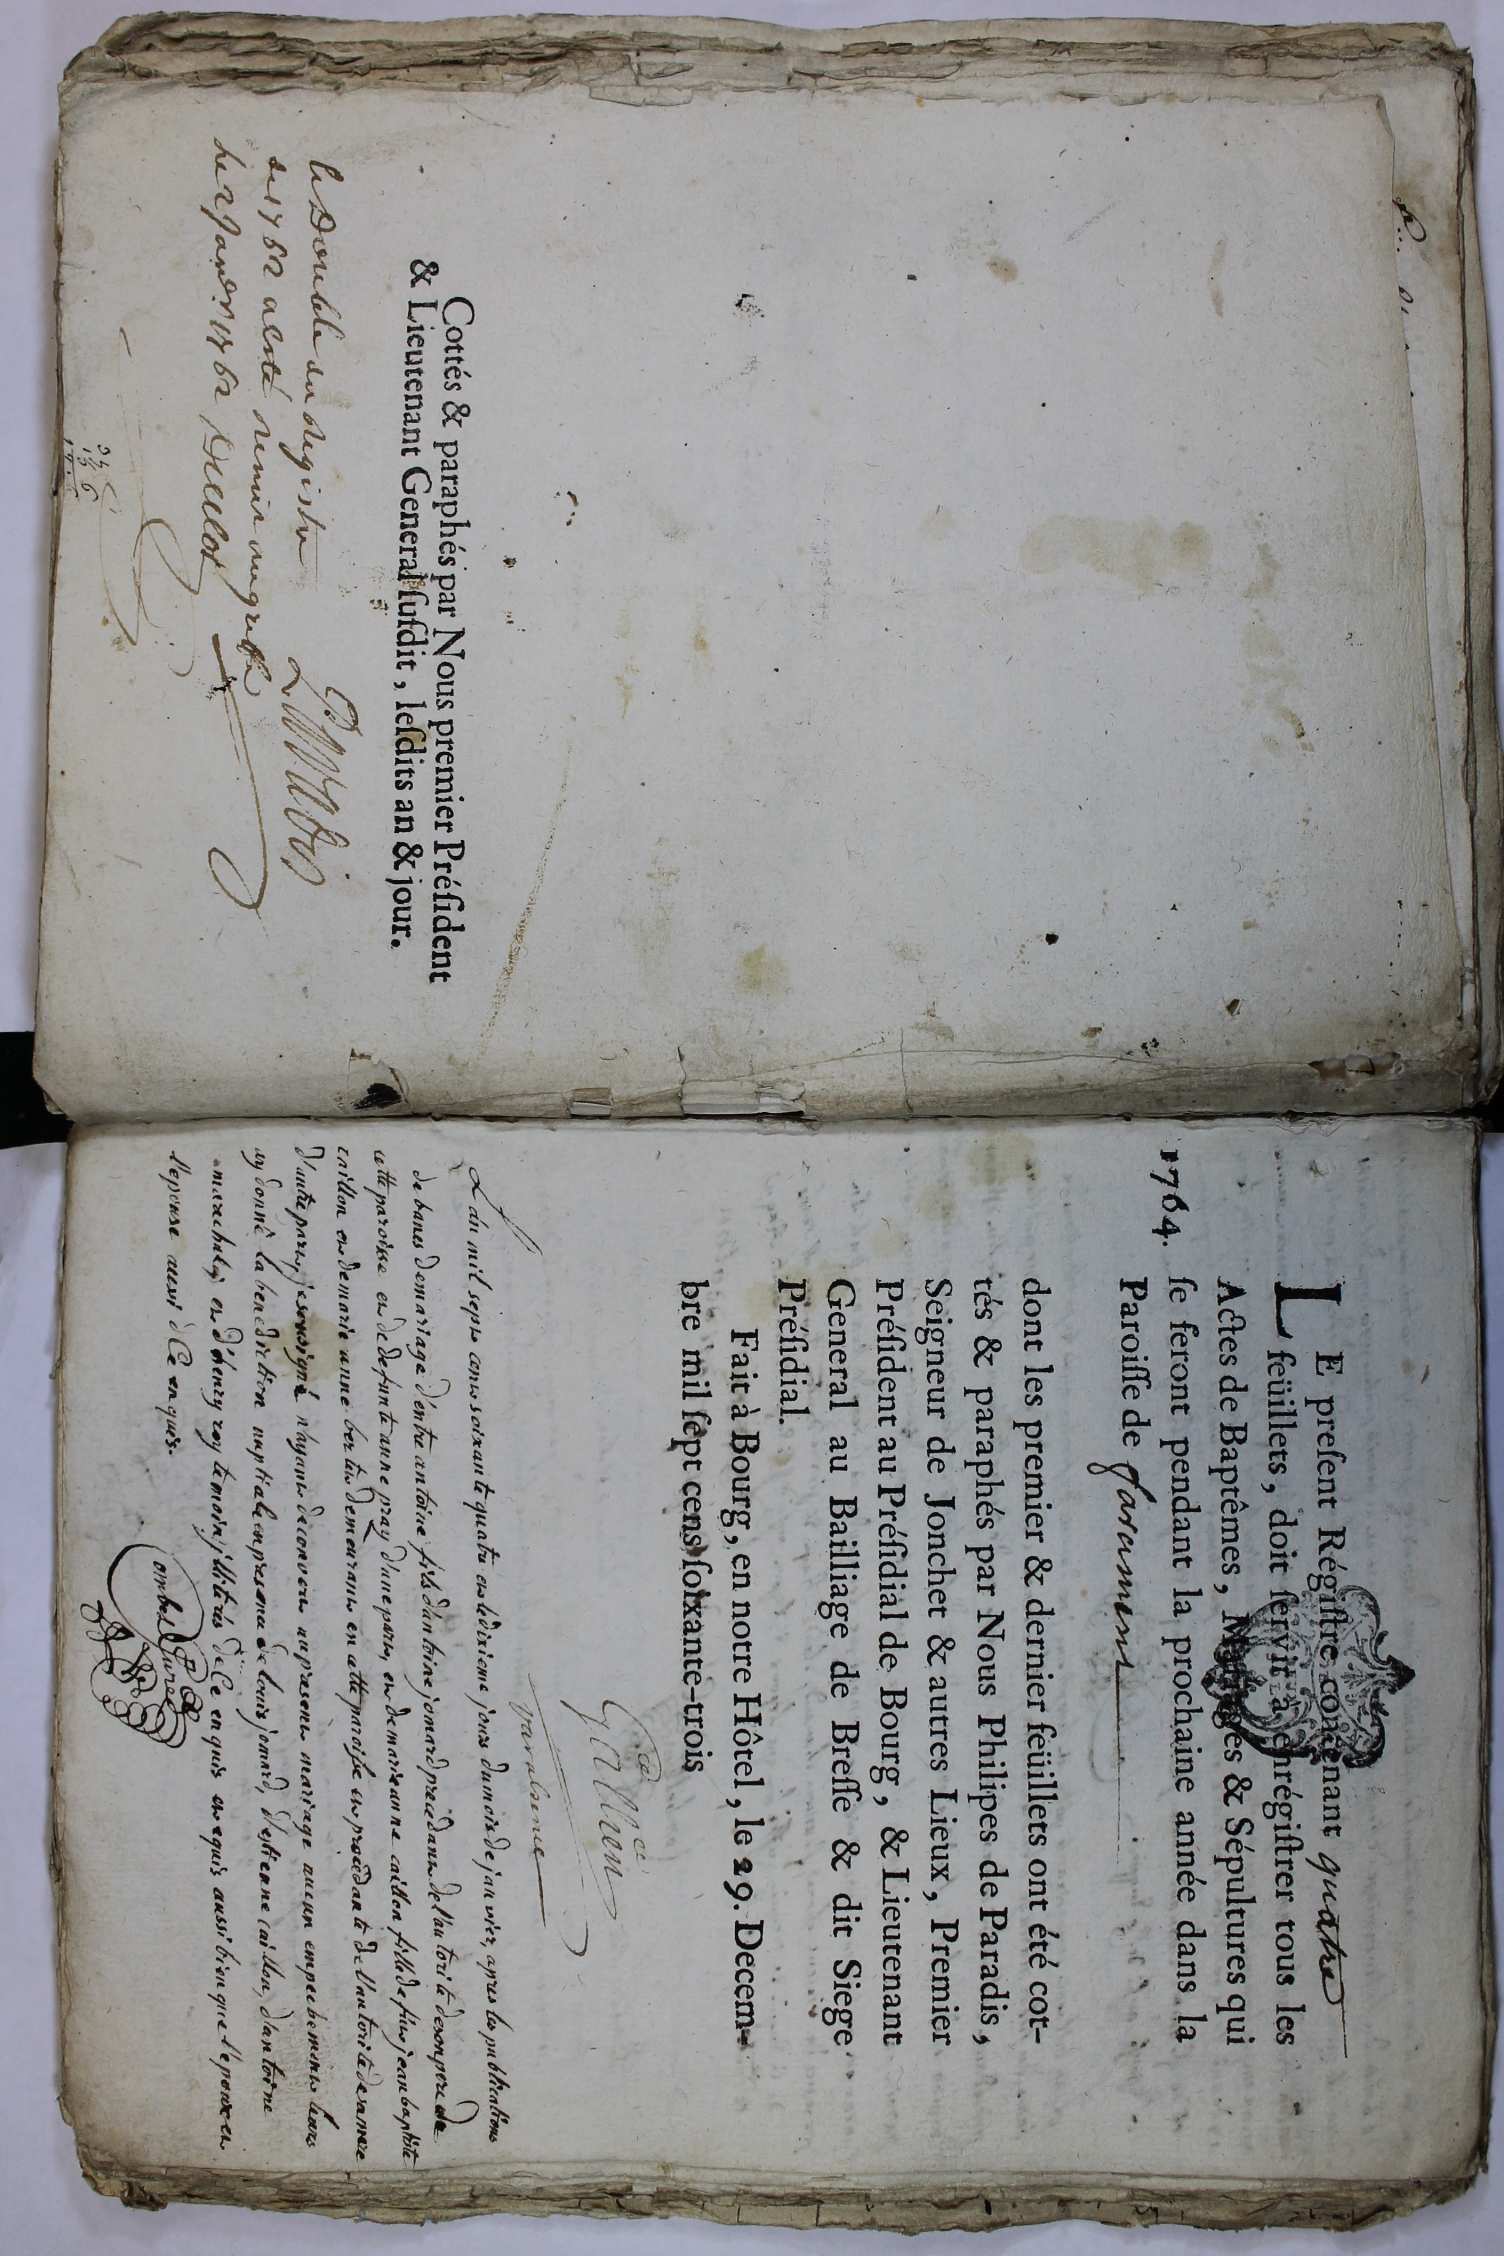 Cottés & paraphés par Nous premier Préſident
& Lieutenant General ſuſdit, leſdits an & jour.
le Double du Registre
de 1762 a esté remis au greffe
le 2 Janvr 1762
1764.
LE preſent Régiſtre contenant quatre
feüillets, doit ſervir à enrégiſtrer tous les
Actes de Baptêmes, Mariages & Sépultures qui
ſe feront pendant la prochaine année dans la
Paroiſſe de faramens
dont les premier & dernier feüillets ont été cot-
tés & paraphés par Nous Philipes de Paradis,
Seigneur de Jonchet & autres Lieux, Premier
Préſident au Préſidial de Bourg, & Lieutenant
General au Bailliage de Breſſe & dit Siege
Préſidial.
Fait à Bourg, en notre Hôtel, le 29. Decem-
bre mil ſept cens ſoixante-trois
par absence
L'an mil sept cens soixante quatre et le dixieme jour du mois de janvier, apres les publications
de bancs de mariage d'entre antoine fils d'antoine jomard procedant de l'autorité de son pere de
cette paroisse et de defunte anne pray d'une part, et de marie anne caillon fille de feu jean baptiste
caillon et de marie anne bertin demeurant en cette paroisse et procedante de l'autorité de sa mere
d'autre part, je soussigné n'ayant decouvert au present mariage aucun empechement leurs
ay donné la benediction nuptiale en presence de louis jomard, d'estienne caillon, d'antoine
marechal, et d'henry rey temoins illitérés de ce enquis et requis aussi bien que l'epoux et
l'epouse aussi de ce enquis.